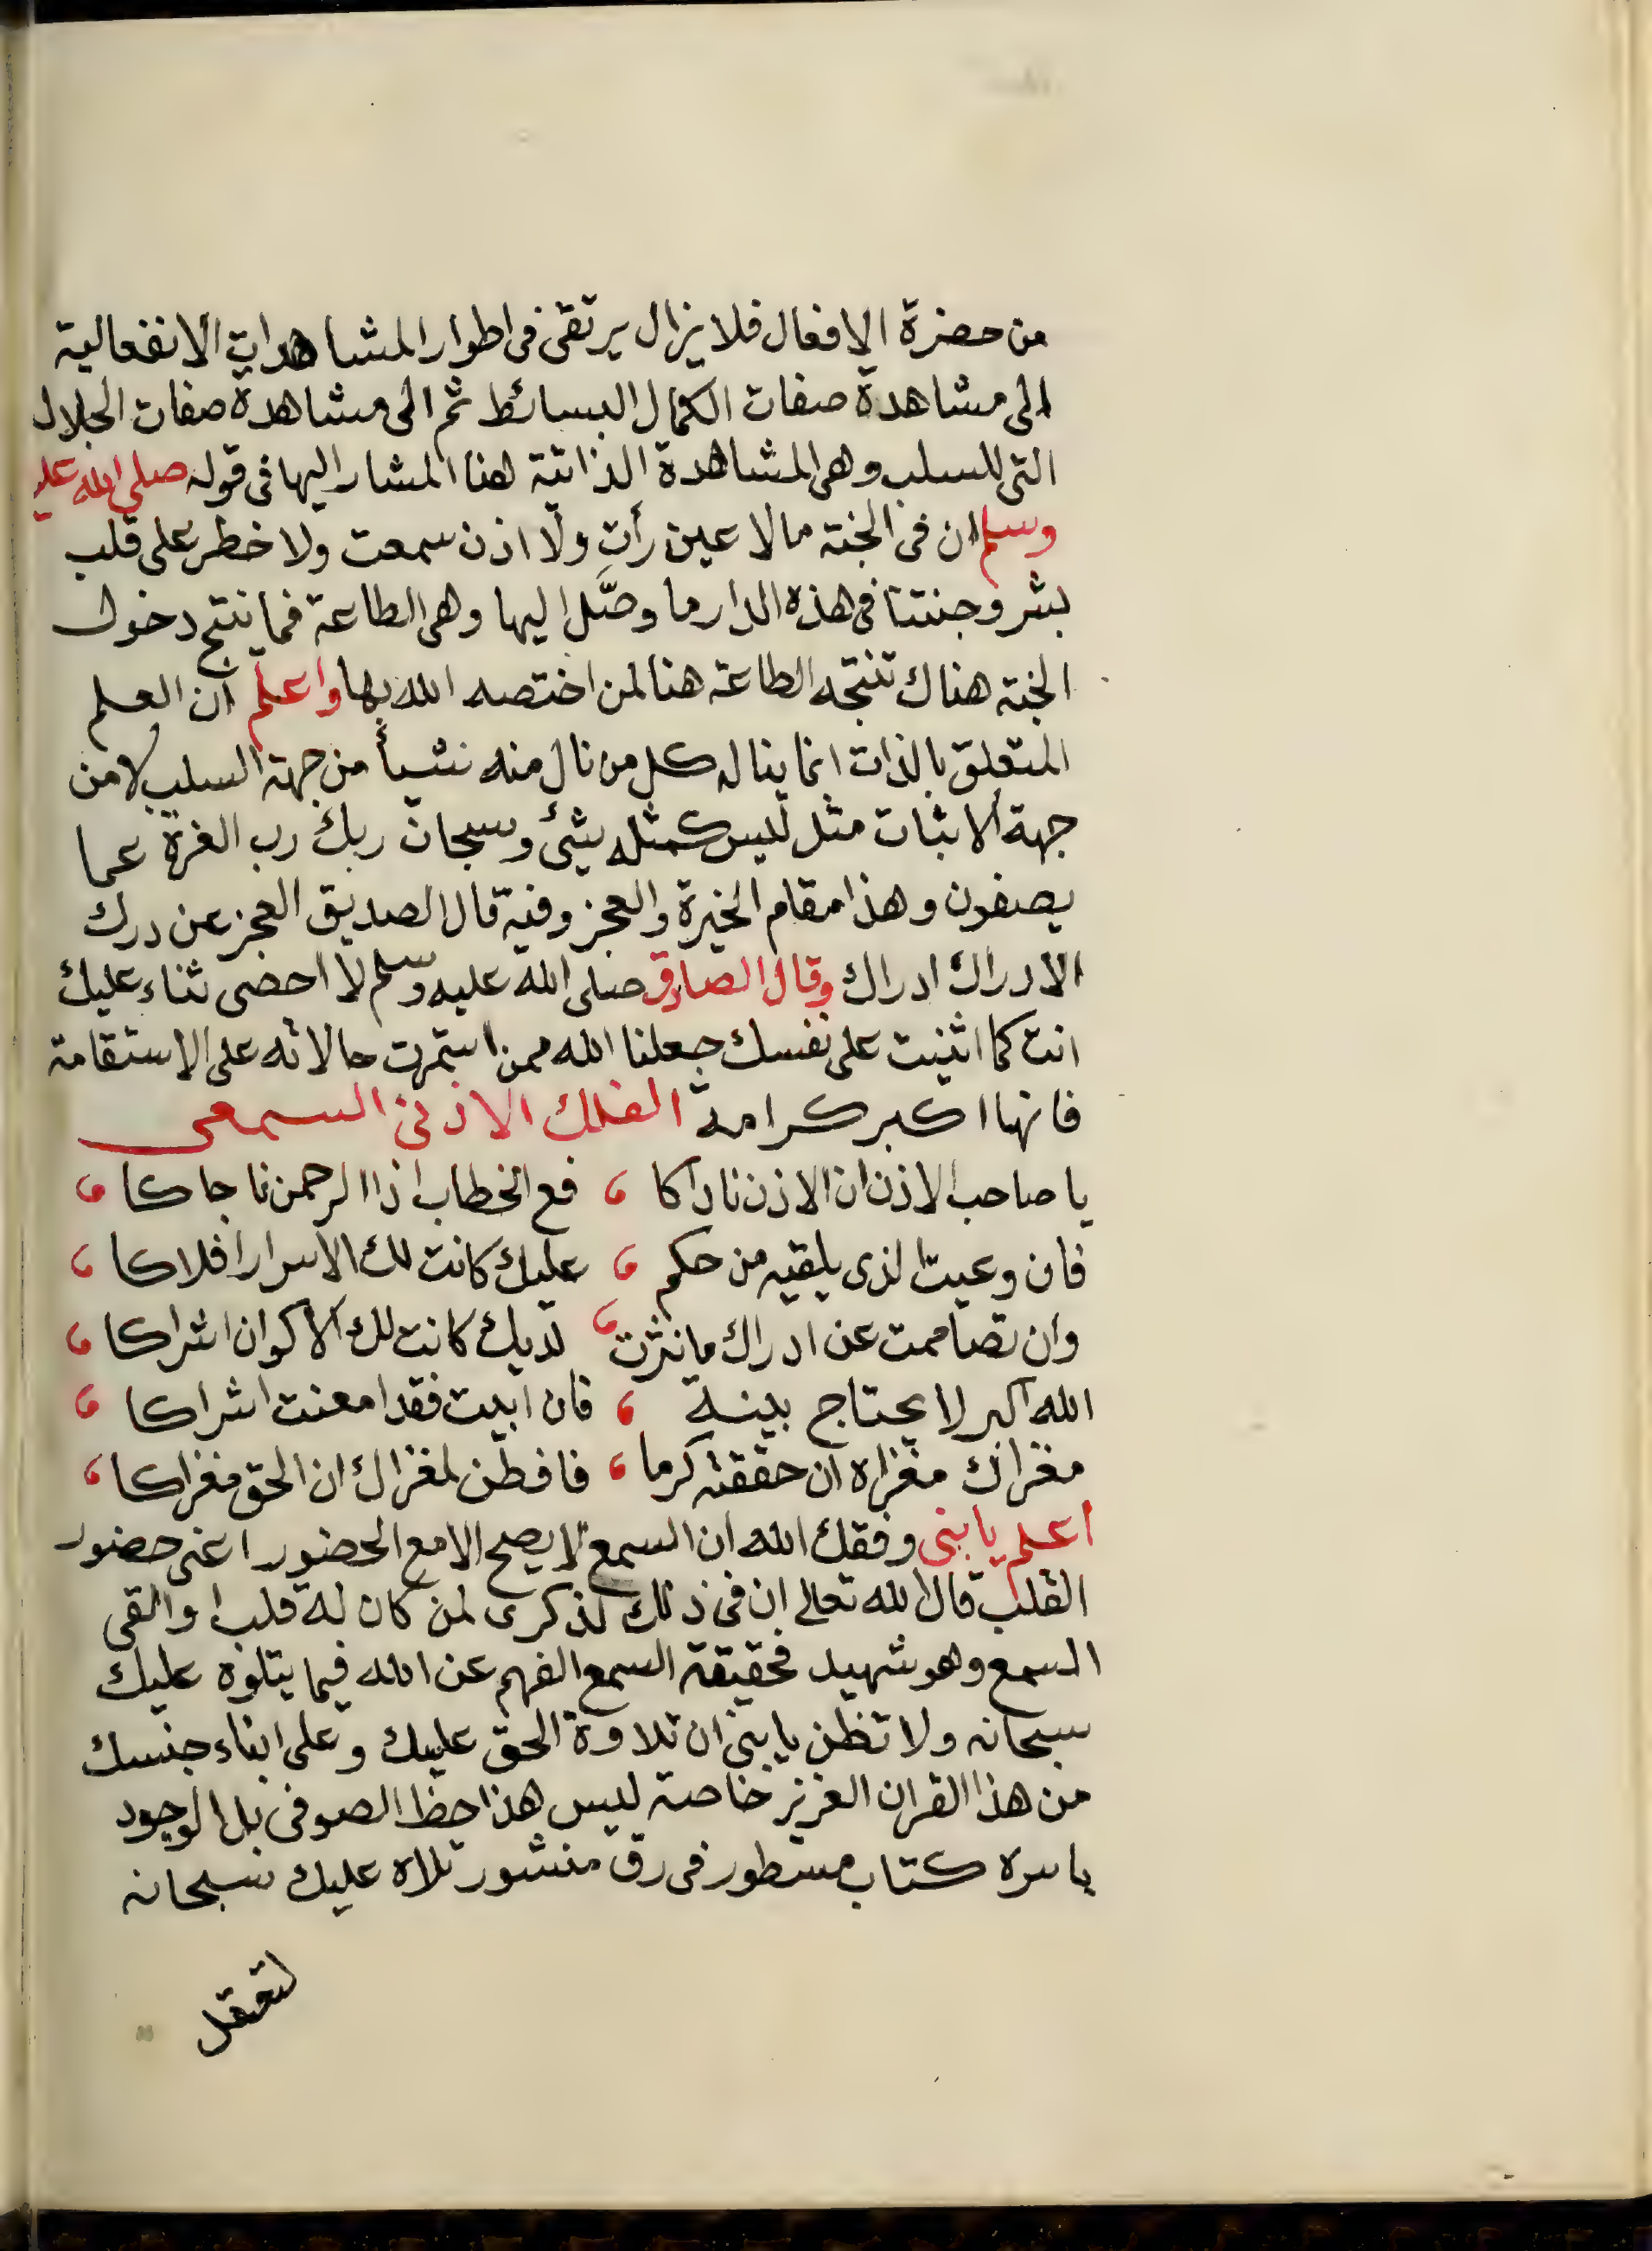 من حضرة الافعال فلا يزال يرتقى فى اطوار المشاهدات الانفعالية
الى مشاهدة صفات الكمال البسائط ثم الى مشاهدة صفات الجلال
التى للسلب وهى المشاهدة الذاتية هنا المشار اليها فى قوله صلى الله عليه
وسلم ان فى الجنة مالا عين رأت ولا اذن سمعت ولا خطر على قلب
بشر وجنتنا فى هذه الدار ما وصَّل اليها وهى الطاعة فما ينتج دخول
الجنة هناك تنتجه الطاعة هنا لمن اختصه الله بها واعلم ان العلم
المتعلق بالذات انما يناله كل من نال منه شيأ من جهة السلب لا من
جهة الاثبات مثل ليس كمثله شئ وسبحان ربك رب العزة عما
يصفون وهذا مقام الحيرة والعجز وفيه قال الصديق العجز عن درك
الادراك ادراك وقال الصادق صلى الله عليه وسلم لا احصى ثناء عليك
انت كما اثنيت على نفسك جعلنا الله ممن استمرت حالاته على الاستقامة
فانها اكبر كرامة الفلك الاذنى السمعى
يا صاحب الاذن ان الاذن ناداكا ، فع الخطاب اذا الرحمن ناجاكا ،
فان وعيت الذى يلقيه من حكم ، عليك كانت لك الاسرار افلاكا ،
وان تصاممت عن ادراك ما نثرت ، لديك كانت لك الاكوان اشراكا ،
الله اكبر لا يحتاج بينة ، فان ابيت فقد امعنت اشراكا ،
مغزاك مغزاه ان حققته كرما ، فافطن لمغزاك ان الحق مغزاكا ،
اعلم يا بنى وفقك الله ان السمع لا يصح الا مع الحضور اعنى حضور
القلب قال الله تعالى ان فى ذلك لذكرى لمن كان له قلب او القى
السمع وهو شهيد فحقيقة السمع الفهم عن الله فيما يتلوه عليك
سبحانه ولا تظن يا بنى ان تلاوة الحق عليك وعلى ابناء جنسك
من هذا القران العزيز خاصة ليس هذا حظ الصوفى بل الوجود
باسره كتاب مسطور فى رق منشور تلاه عليك سبحانه
لتعقل